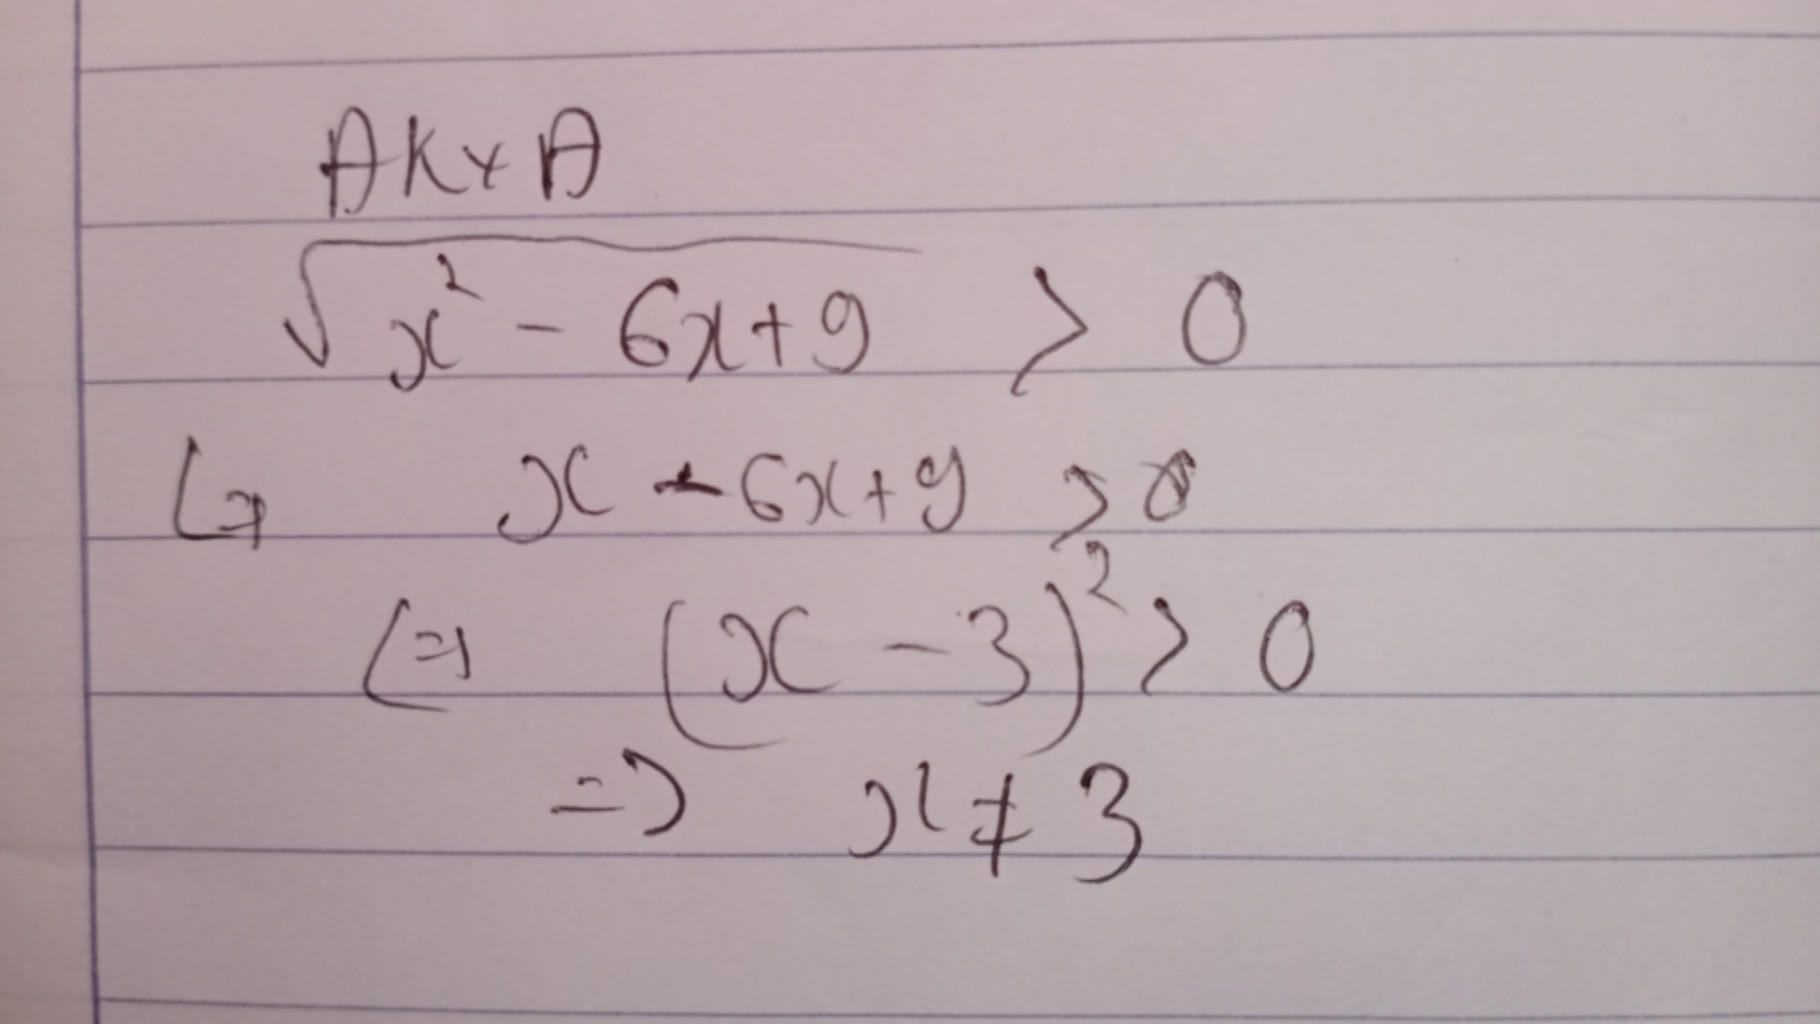 AKXA
√x² - 6x+9 > 0
↳ x - 6x+9 > 0
<=> (x - 3)² > 0
=> x ≠ 3